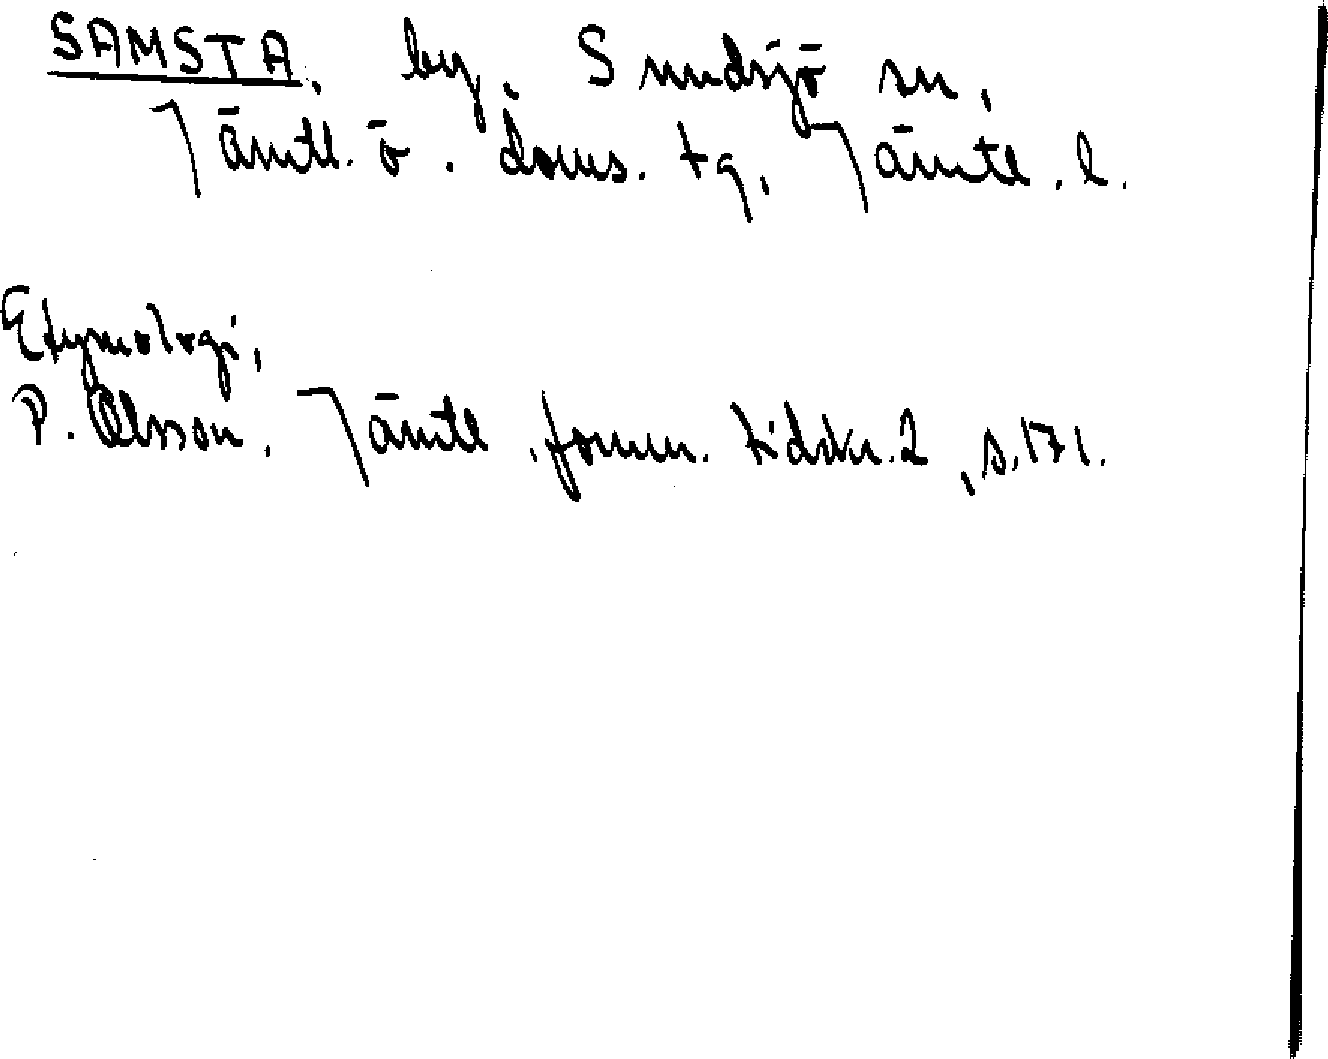 SAMSTA, by, Sundsjö sn,
Jämtl. ö. doms. tg, Jämtl. l.
Etymologi,
P. Olsson, Jämtl. fornm. tidskr. 2, s. 171.